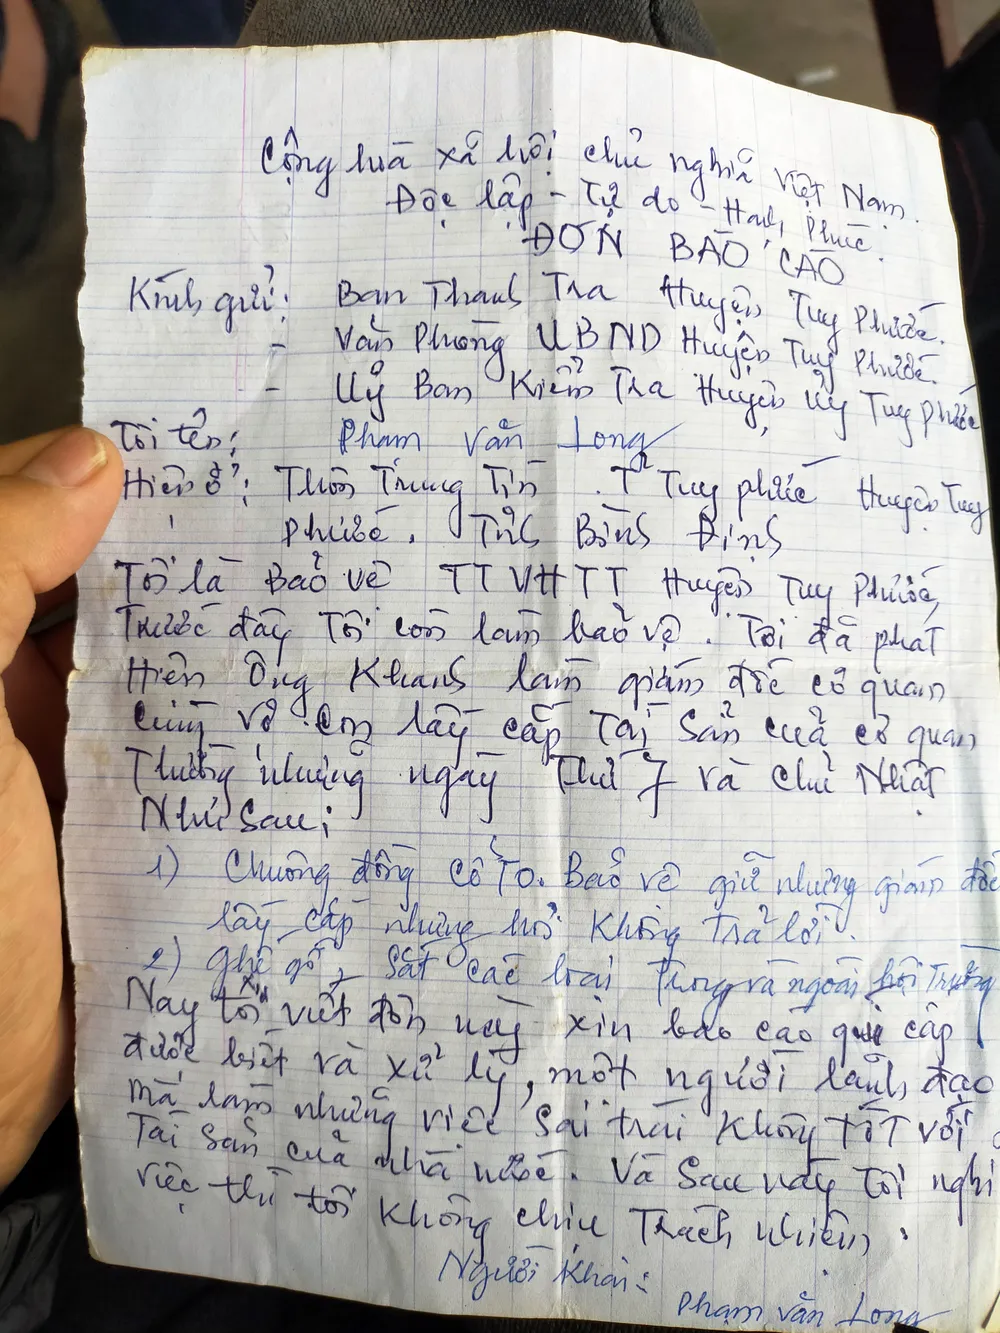 Cộng hoà xã hội chủ nghĩa Việt Nam.
Độc lập - Tự do - Hạnh Phúc.
ĐƠN BÁO CÁO
Kính gửi: Ban Thanh Tra Huyện Tuy Phước.
- Văn Phòng UBND Huyện Tuy Phước.
- Uỷ Ban Kiểm Tra Huyện Uỷ Tuy Phước
Tôi tên: Phạm Văn Long
Hiện ở: Thôn Trung Tín . T² Tuy phước Huyện Tuy
Phước. Tỉnh Bình Định
Tôi là Bảo vệ TTVHTT Huyện Tuy Phước,
Trước đây Tôi còn làm bảo vệ. Tôi đã phát
Hiện Ông Khanh làm giám đốc cơ quan
cùng vợ con lấy cắp Tài Sản của cơ quan
Thường những ngày Thứ 7 và Chủ Nhật
Như Sau;
1) Chuông đồng Cổ To. Bảo vệ giữ nhưng giám đốc
lấy cắp nhưng hỏi Không Trả lời.
2) Ghế gỗ, Sắt các loại Trong và ngoài hội Trường
Nay tôi viết đơn này xin báo cáo quí cấp
được biết và xử lý, một người lãnh đạo
mà làm những việc Sai trái Không Tốt với
Tài Sản của nhà nước. Và Sau này Tôi nghỉ
việc thì tôi Không chịu Trách nhiệm.
Người Khai:
Phạm Văn Long